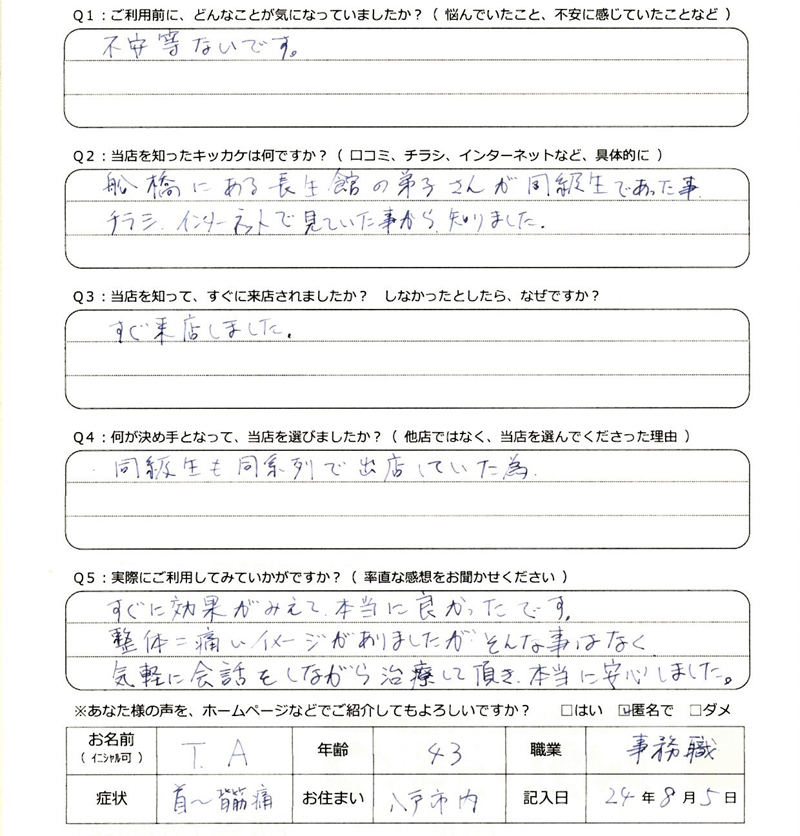 Q1：ご利用前に、どんなことが気になっていましたか？（ 悩んでいたこと、不安に感じていたことなど ）
不安等ないです。
Q2：当店を知ったキッカケは何ですか？（ 口コミ、チラシ、インターネットなど、具体的に ）
船橋にある長生館の弟子さんが同級生であった事、
チラシ、インターネットで見ていた事から、知りました。
Q3：当店を知って、すぐに来店されましたか？　しなかったとしたら、なぜですか？
すぐ来店しました。
Q4：何が決め手となって、当店を選びましたか？（ 他店ではなく、当店を選んでくださった理由 ）
同級生も同系列で出店していた為。
Q5：実際にご利用してみていかがですか？（ 率直な感想をお聞かせください ）
すぐに効果がみえて、本当に良かったです。
整体＝痛いイメージがありましたが、そんな事はなく
気軽に会話をしながら治療して頂き、本当に安心しました。
※あなた様の声を、ホームページなどでご紹介してもよろしいですか？　□はい　☑匿名で　□ダメ
お名前（ ｲﾆｼｬﾙ可 ） T. A 年齢 43 職業 事務職
症状 首〜背筋痛 お住まい 八戸市内 記入日 24年8月5日